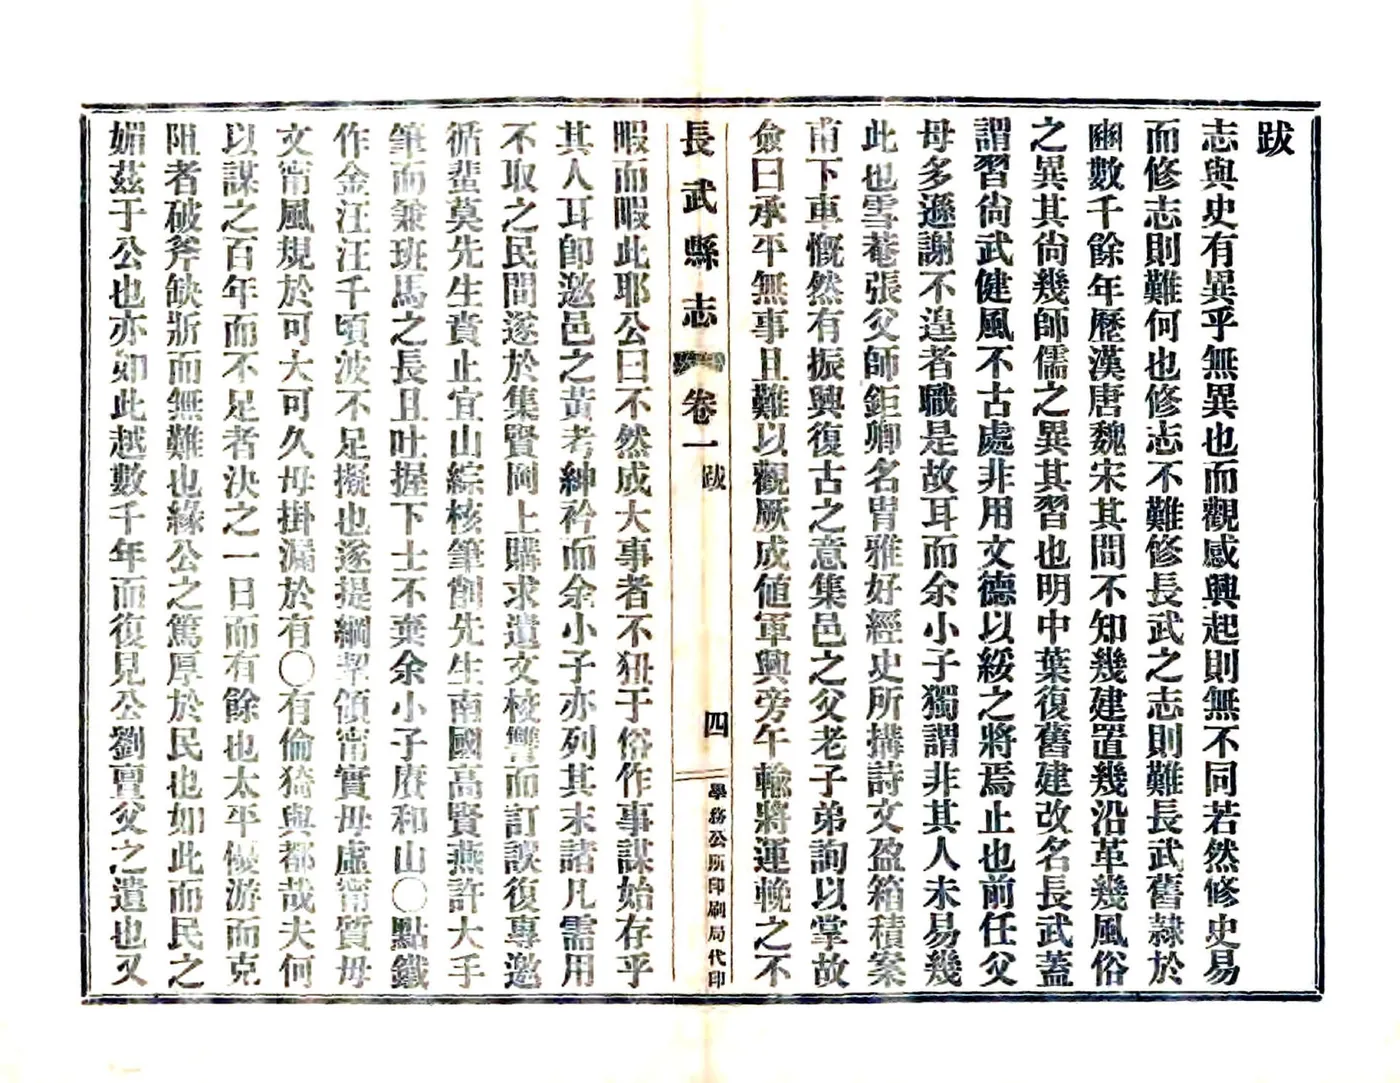 跋
志與史有異乎無異也而觀感興起則無不同若然修史易
而修志則難何也修志不難修長武之志則難長武舊隸於
豳數千餘年歷漢唐魏宋其間不知幾建置幾沿革幾風俗
之異其尙幾師儒之異其習也明中葉復舊建改名長武蓋
謂習尙武健風不古處非用文德以綏之將焉止也前任父
母多遜謝不遑者職是故耳而余小子獨謂非其人未易幾
此也雪菴張父師鉅卿名胄雅好經史所搆詩文盈箱積案
甫下車慨然有振興復古之意集邑之父老子弟詢以掌故
僉曰承平無事且難以觀厥成値軍興旁午輸將運輓之不
長武縣志
卷一
跋
四
學務公所印刷局代印
暇而暇此耶公曰不然成大事者不狃于俗作事謀始存乎
其人耳卽邀邑之黃考紳衿而余小子亦列其末諸凡需用
不取之民間遂於集賢岡上購求遺文校讐而訂誤復專邀
循蜚莫先生賁止宜山綜核筆削先生南國高賢燕許大手
筆而兼班馬之長且吐握下士不棄余小子賡和山〇點鐵
作金汪汪千頃波不足擬也遂提綱挈領甯實毋虛甯質毋
文甯風規於可大可久毋掛漏於有〇有倫猗與都哉夫何
以謀之百年而不足者決之一日而有餘也太平優游而克
阻者破斧缺斨而無難也緣公之篤厚於民也如此而民之
媚茲于公也亦如此越數千年而復見公劉亶父之遺也又